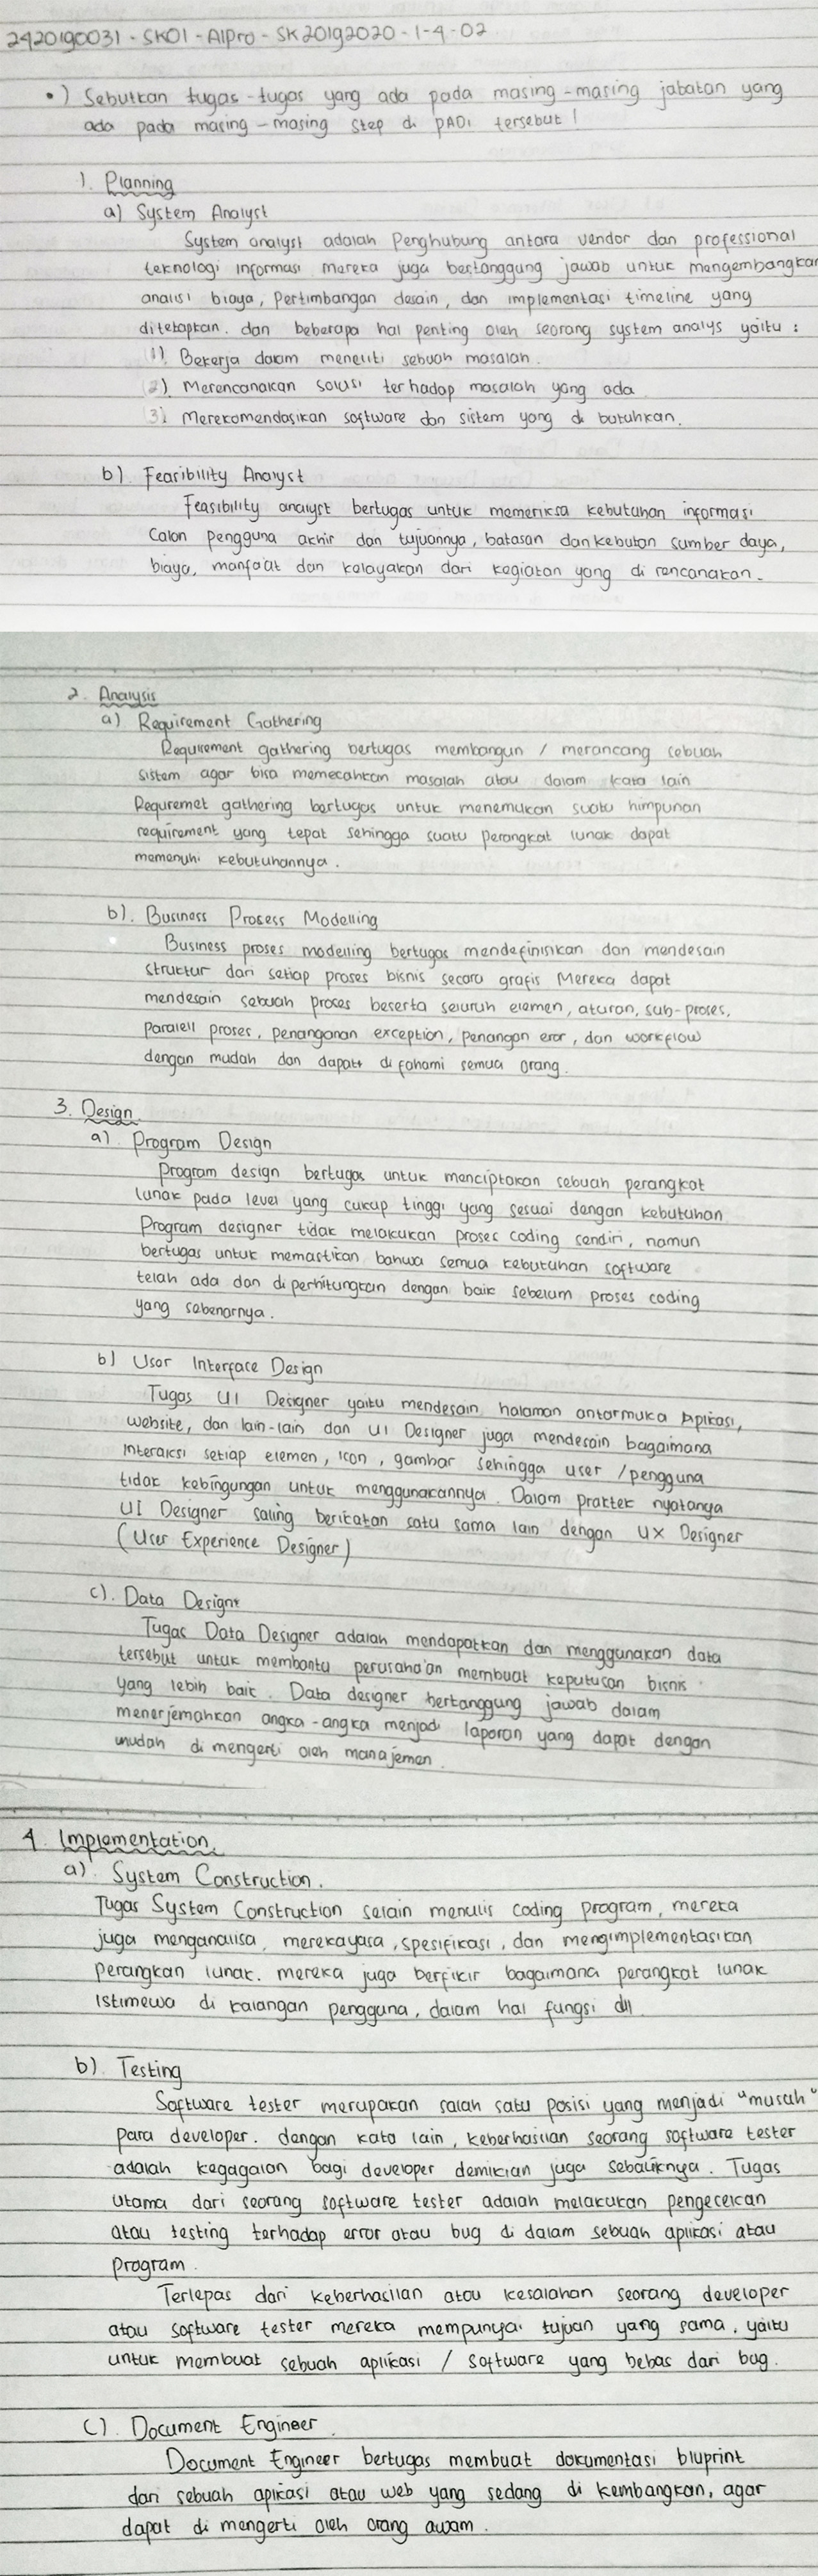 2420190031 - SK01 - AlPro - SK20192020 - 1-4-02
•) Sebutkan tugas-tugas yang ada pada masing-masing jabatan yang
ada pada masing-masing step di PADI tersebut!
1. Planning
a) System Analyst
System analyst adalah Penghubung antara vendor dan professional
teknologi informasi mereka juga bertanggung jawab untuk mengembangkan
analisi biaya, Pertimbangan desain, dan implementasi timeline yang
ditetapkan. dan beberapa hal penting oleh seorang system analys yaitu :
(1). Bekerja dalam meneliti sebuah masalah.
(2). Merencanakan solusi terhadap masalah yang ada
(3). Merekomendasikan software dan sistem yang di butuhkan.
b) Feasibility Analyst
Feasibility analyst bertugas untuk memeriksa kebutuhan informasi
Calon pengguna akhir dan tujuannya, batasan dan kebutan sumber daya,
biaya, manfaat dan kelayakan dari kegiatan yang di rencanakan.
2. Analysis
a) Requirement Gathering
Requirement gathering bertugas membangun / merancang sebuah
sistem agar bisa memecahkan masalah atau dalam kata lain
Requremet gathering bertugas untuk menemukan suatu himpunan
requirement yang tepat sehingga suatu perangkat lunak dapat
memenuhi kebutuhannya.
b). Business Process Modelling
Business proses modelling bertugas mendefinisikan dan mendesain
struktur dari setiap proses bisnis secara grafis Mereka dapat
mendesain sebuah proses beserta seluruh elemen, aturan, sub-proses,
paralell proses, penanganan exception, penangan eror, dan workflow
dengan mudah dan dapatt di fahami semua orang.
3. Design
a) Program Design
Program design bertugas untuk menciptakan sebuah perangkat
lunak pada level yang cukup tinggi yang sesuai dengan kebutuhan
Program designer tidak melakukan proses coding sendiri, namun
bertugas untuk memastikan bahwa semua kebutuhan software
telah ada dan diperhitungkan dengan baik sebelum proses coding
yang sebenarnya.
b) User Interface Design
Tugas UI Designer yaitu mendesain halaman antarmuka aplikasi,
website, dan lain-lain dan UI Designer juga mendesain bagaimana
interaksi setiap elemen, icon, gambar sehingga user / pengguna
tidak kebingungan untuk menggunakannya. Dalam praktek nyatanya
UI Designer saling berikatan satu sama lain dengan UX Designer
(User Experience Designer)
c). Data Design
Tugas Data Designer adalah mendapatkan dan menggunakan data
tersebut untuk membantu perusahaan membuat keputusan bisnis
yang lebih baik. Data designer bertanggung jawab dalam
menerjemahkan angka-angka menjadi laporan yang dapat dengan
mudah di mengerti oleh manajemen.
4. Implementation.
a). System Construction.
Tugas System Construction selain menulis coding program, mereka
juga menganalisa, merekayasa, spesifikasi, dan mengimplementasikan
perangkan lunak. mereka juga berfikir bagaimana perangkat lunak
istimewa di kalangan pengguna, dalam hal fungsi dll
b). Testing
Software tester merupakan salah satu posisi yang menjadi "musuh"
para developer. dengan kata lain, keberhasilan seorang software tester
adalah kegagalan bagi developer demikian juga sebaliknya. Tugas
utama dari seorang software tester adalah melakukan pengecekan
atau testing terhadap error atau bug di dalam sebuah aplikasi atau
program.
Terlepas dari keberhasilan atau kesalahan seorang developer
atau software tester mereka mempunyai tujuan yang sama, yaitu
untuk membuat sebuah aplikasi / software yang bebas dari bug.
C). Document Engineer.
Document Engineer bertugas membuat dokumentasi bluprint
dari sebuah aplikasi atau web yang sedang di kembangkan, agar
dapat di mengerti oleh orang awam.